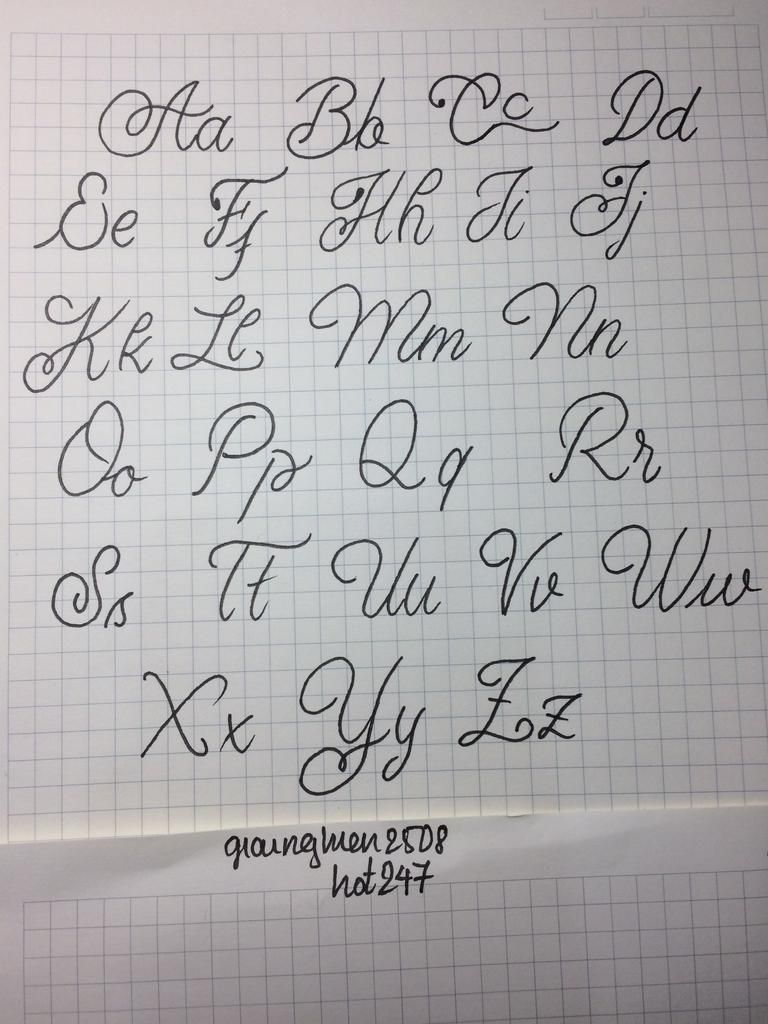 Aa Bb Cc Dd
Ee Ff Hh Ii Jj
Kk Ll Mm Nn
Oo Pp Qq Rr
Ss Tt Uu Vv Ww
Xx Yy Zz
hot247